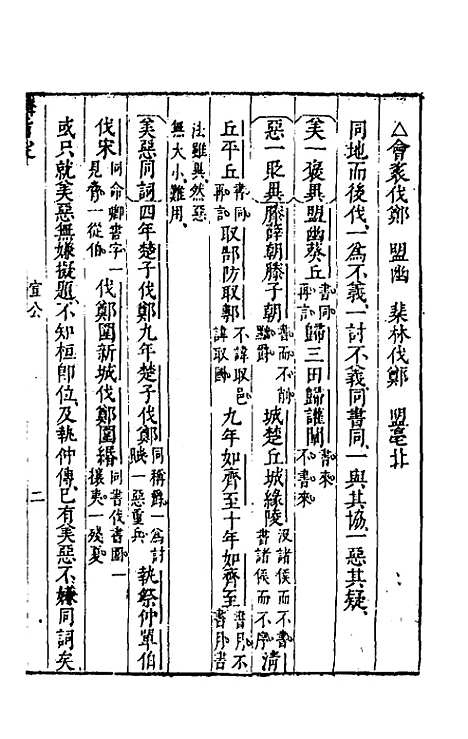 △會袲伐鄭　盟幽　棐林伐鄭　盟亳北
同地而後伐、一爲不義、一討不義、同書同、一與其協、一惡其疑、
美一褒異盟幽葵丘書同再言歸三田歸讙闡書來不書來
惡一貶異滕薛朝滕子朝書而不削黜爵城楚丘城緣陵沒諸侯而不書書諸侯而不序清
丘平丘書同再言取郜防取鄟不諱取邑諱取國九年如齊至十年如齊至書月不書月書
法雖異然惡無大小難用
美惡同詞四年楚子伐鄭九年楚子伐鄭同稱爵一爲討賊一惡重兵執祭仲單伯
伐宋同命卿書字一見脅一從伯伐鄭圍新城伐鄭圍緡同書伐書圍一攘夷一殘夏
或只就美惡無嫌擬題、不知桓卽位、及執仲傳、已有美惡不嫌同詞矣、
宣公
二